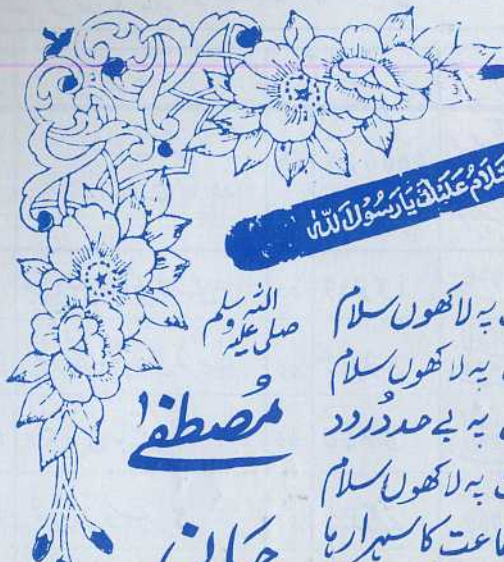 عَلَيْكَ يَا رَسُولَ اللّٰہ
صلی اللہ علیہ وسلم
مُصطفیٰ
پہ لاکھوں سلام
پہ لاکھوں سلام
پہ بے حد دُرود
پہ لاکھوں سلام
کا سہرا رہا
جان